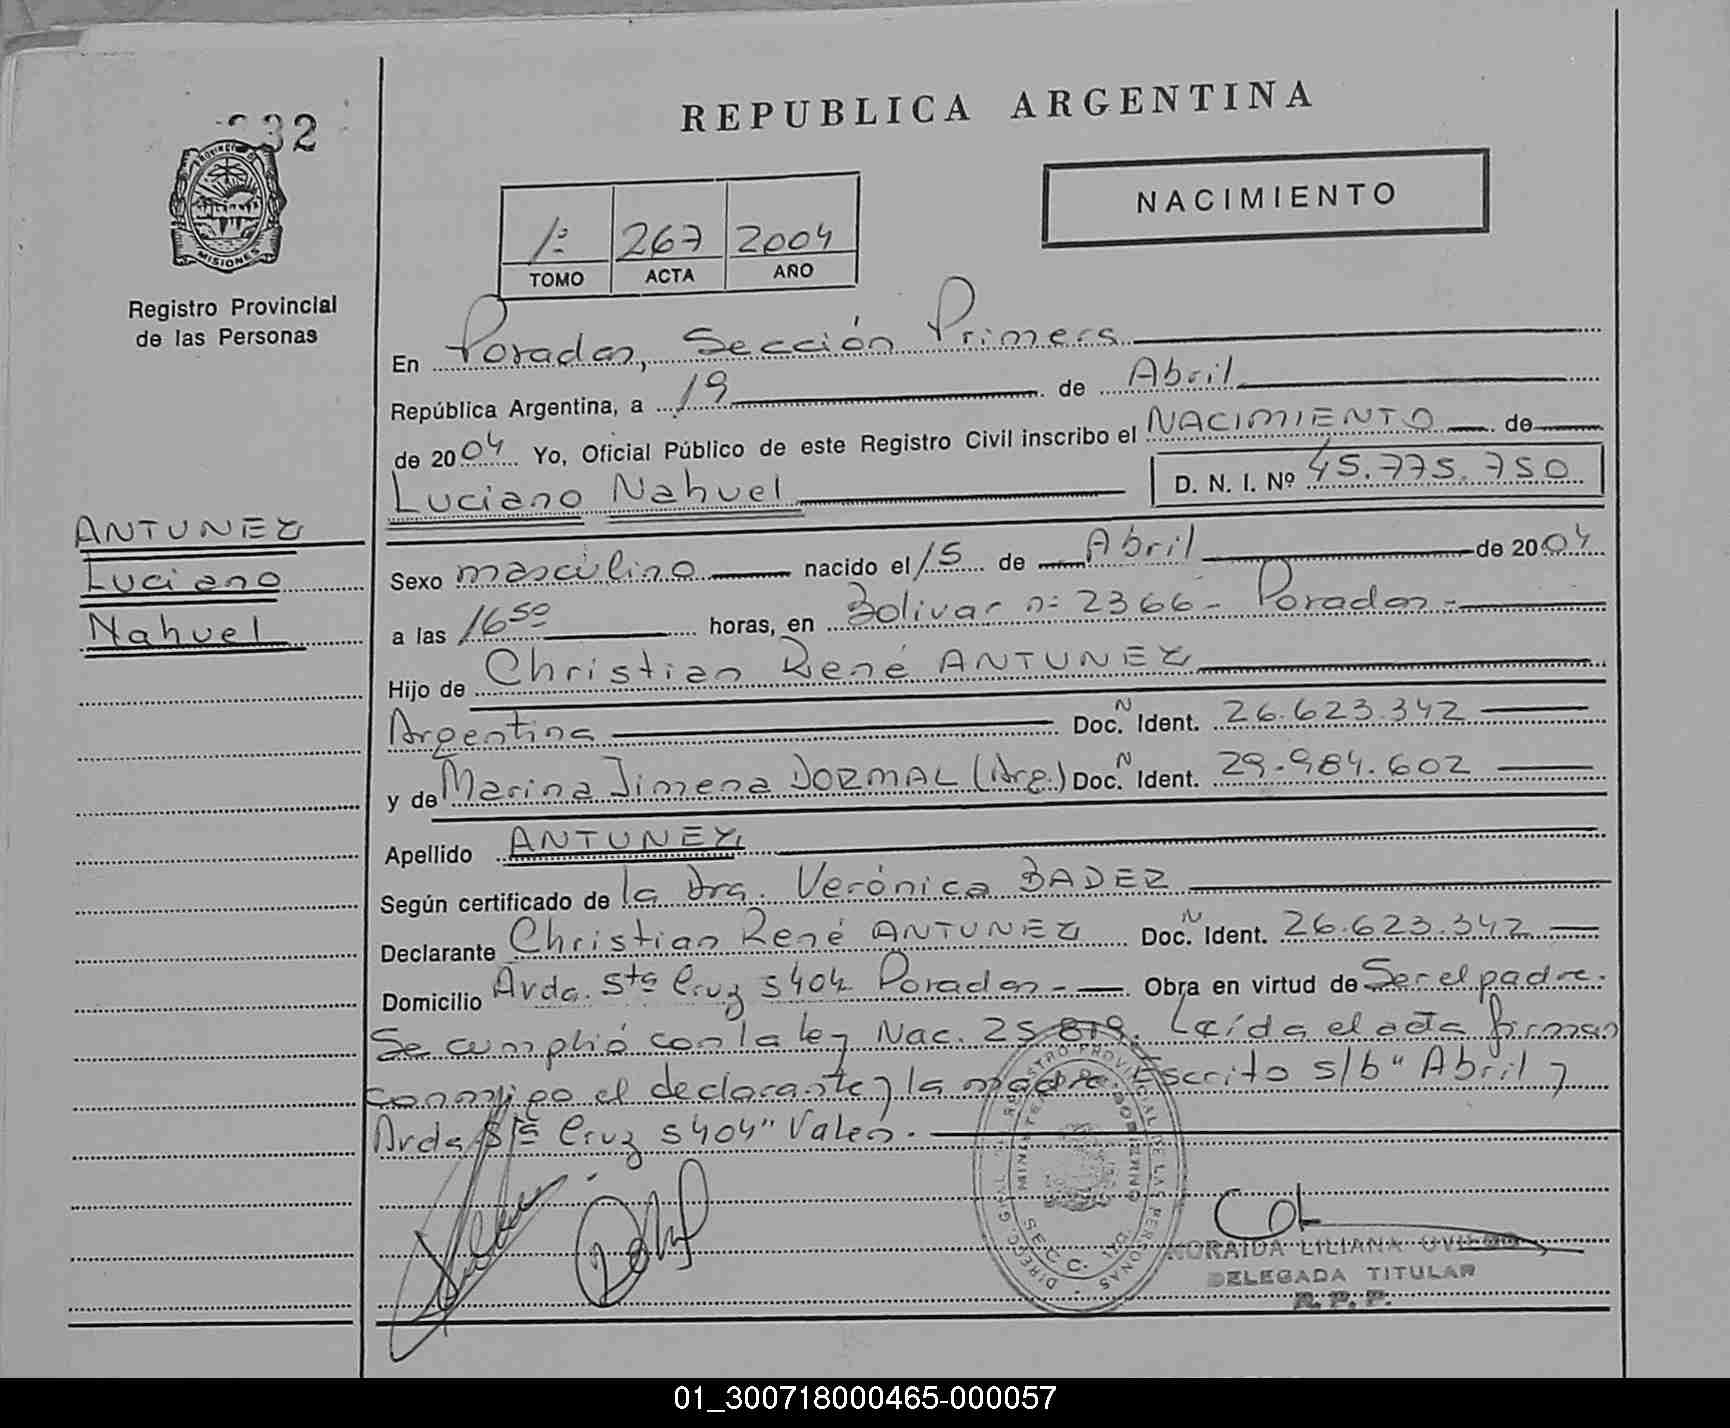 REPUBLICA ARGENTINA
32
PROVINCIA DE
MISIONES
Registro Provincial
de las Personas
NACIMIENTO
1º 267 2004
TOMO ACTA AÑO
En Posadas, Sección Primera
República Argentina, a 19 de Abril
de 2004 Yo, Oficial Público de este Registro Civil inscribo el NACIMIENTO de
Luciano Nahuel D. N. I. Nº 45.775.750
ANTUNEZ
Luciano
Nahuel
Sexo masculino nacido el 15 de Abril de 2004
a las 16 50 horas, en Bolivar nº 2366 - Posadas -
Hijo de Christian René ANTUNEZ
Argentina Doc. N Ident. 26.623.342
y de Marina Jimena DORMAL (Arg.) Doc. N Ident. 29.984.602
Apellido ANTUNEZ
Según certificado de la Dra. Verónica BADER
Declarante Christian René ANTUNEZ Doc. N Ident. 26.623.342
Domicilio Avda. Sta Cruz 5404 Posadas - Obra en virtud de Ser el padre.
Se cumplió con la ley Nac. 25.819. Leída el acta firman
conmigo el declarante y la madre. Escrito s/b "Abril y
Avda Sta Cruz 5404" Valen.
REGISTRO PROVINCIAL DE LAS PERSONAS
GOBIERNO
SECC.
NORAIDA LILIANA OVIEDO
DELEGADA TITULAR
R. P. P.
01_300718000465-000057